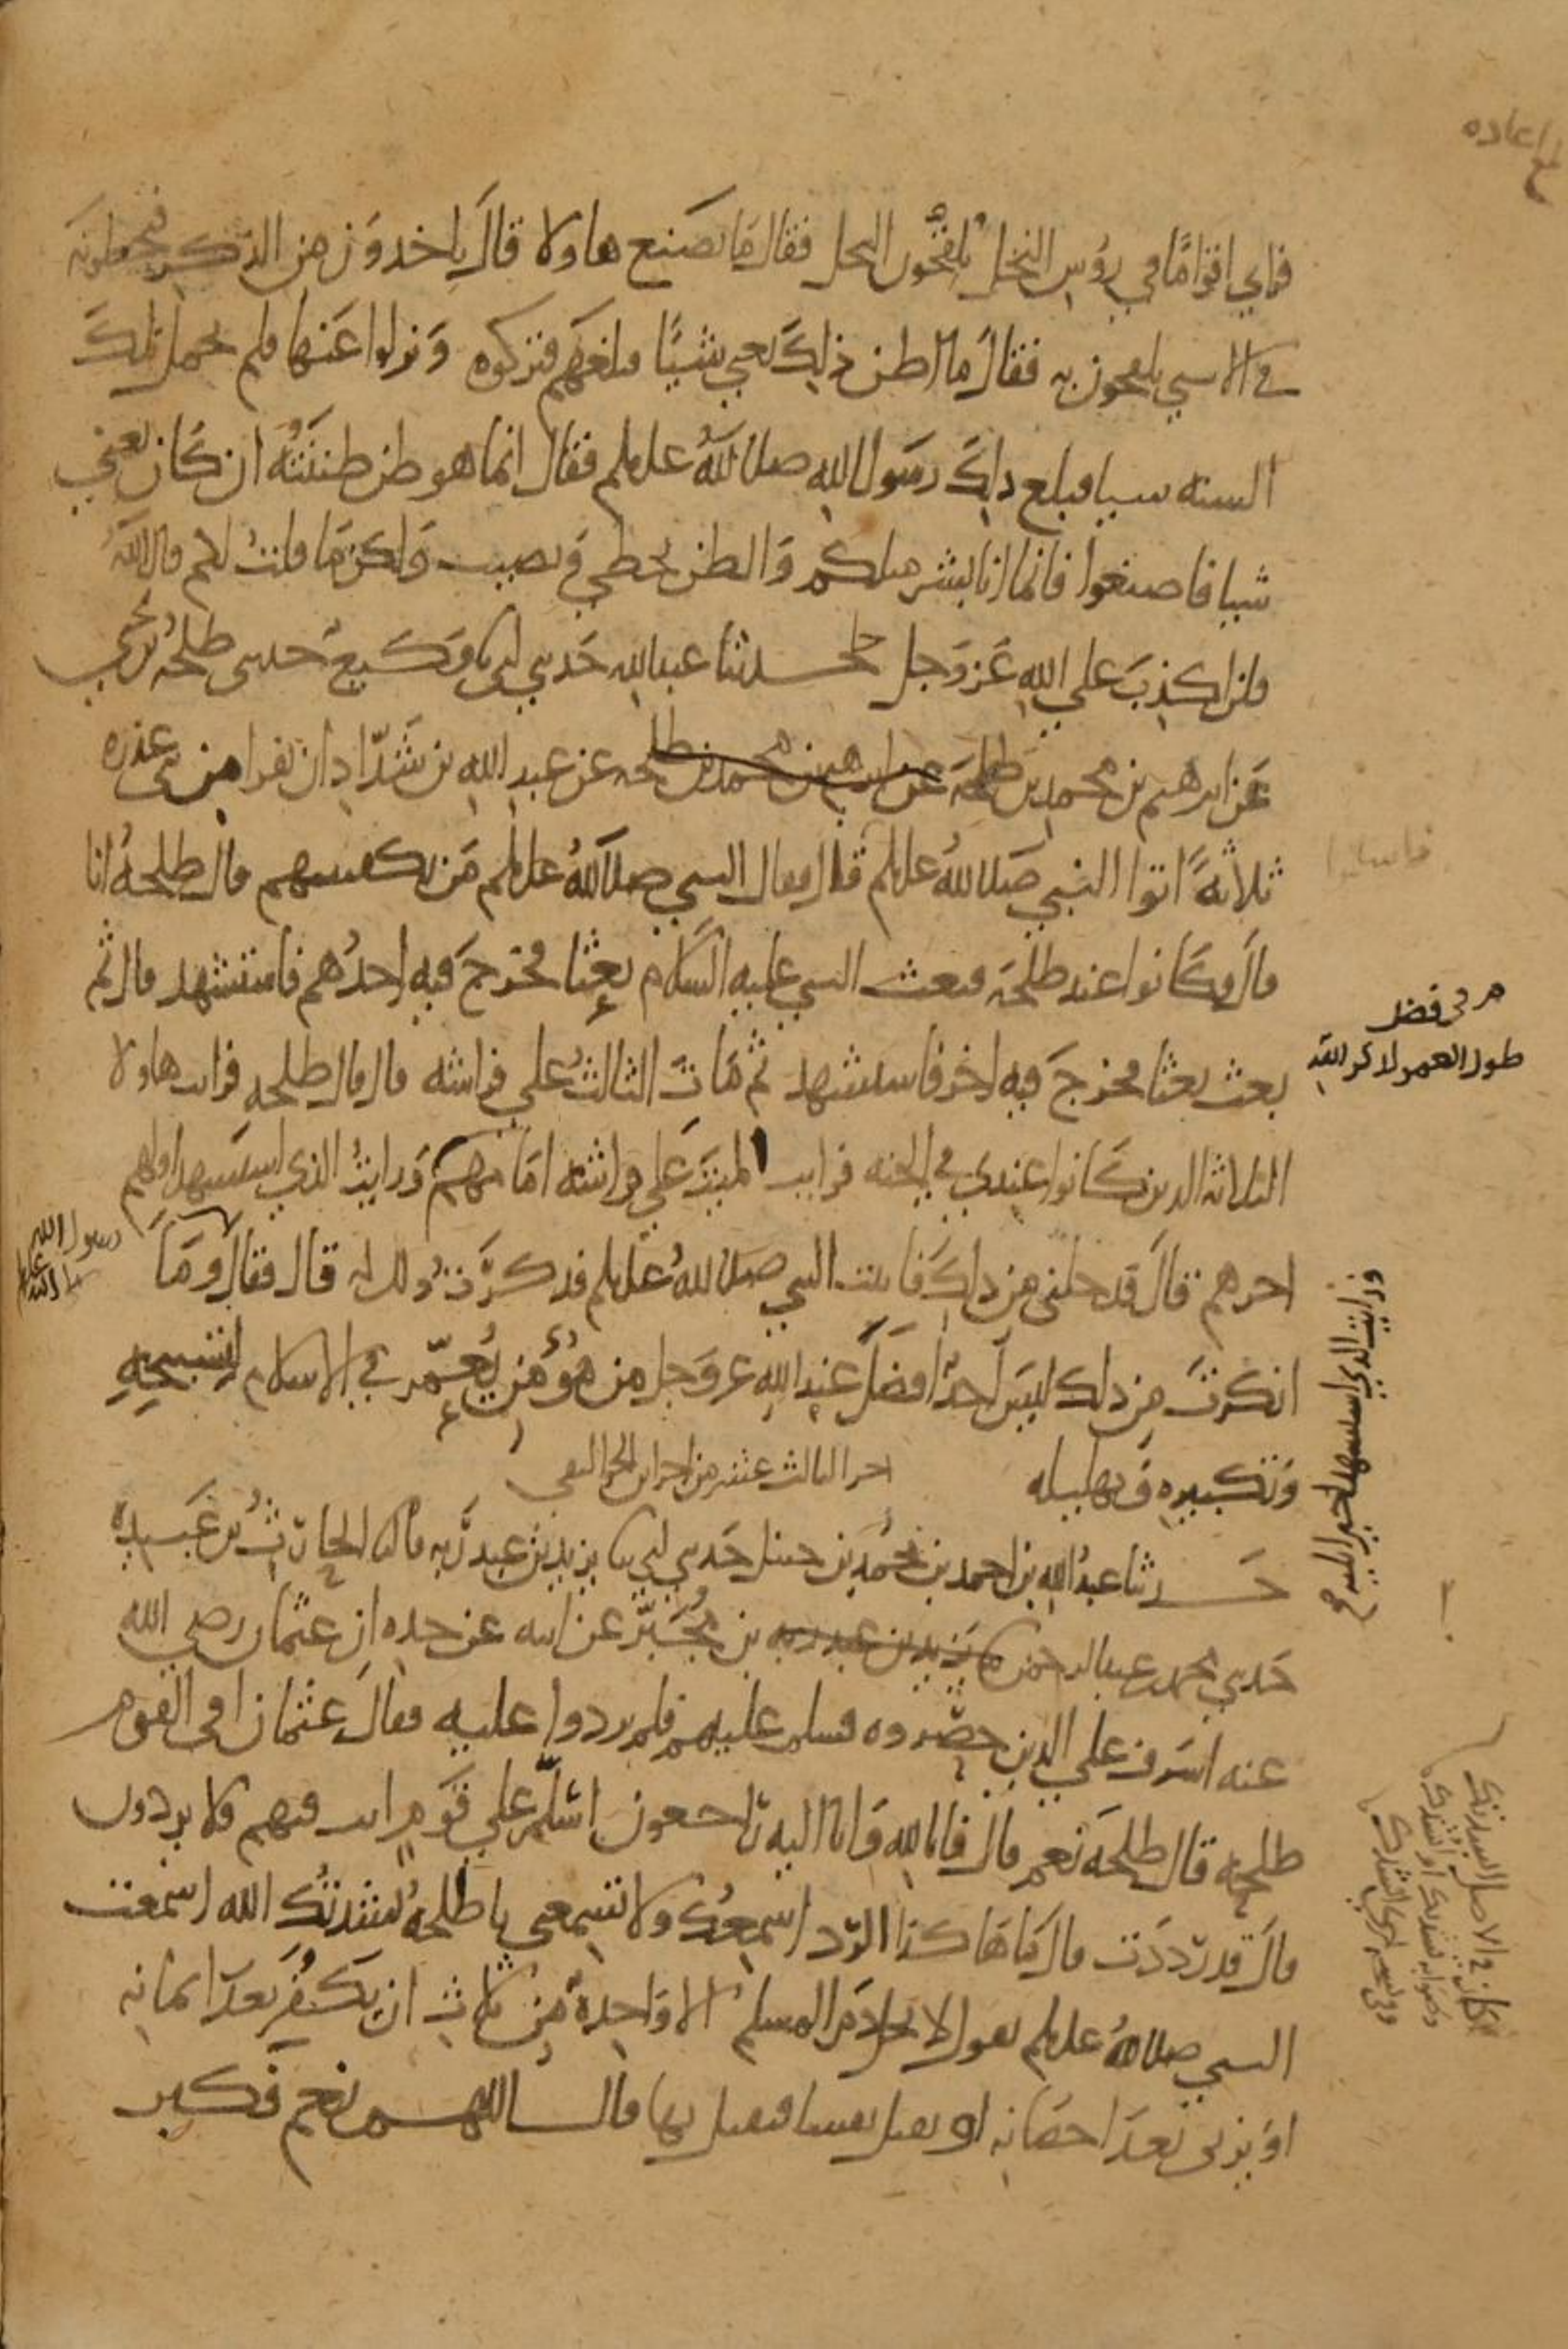 بلغ اعاده
فراي اقوامًا في رؤس النخل يلقحون النخل فقال ما يصنع هاولا قال ياخدون من الذكر فيحطونه
في الانثي يلقحون به فقال ما اظن ذلك يغني شيئًا فبلغهم فتركوه ونزلوا عنها فلم يحمل تلك
السنه شيا فبلغ ذلك رسول الله صلى الله علىه وسلم فقال انما هو ظن ظننته ان كان يغني
شيا فاصنعوا فانما انا بشر مثلكم والظن يخطي ويصيب ولكن ما قلت لكم قال الله
فلن اكذب علي الله عز وجل حدثنا عبد الله حدثني ابي نا وكيع حدثني طلحه بن يحيي
عن ابرهيم بن محمد بن طلحة عن ابرهيم بن محمد بن طلحه عن عبد الله بن شداد ان نفرا من بني عذره
ثلاثة اتوا النبي صلى الله علىه وسلم قال فقال النبي صلى الله علىه وسلم من يكفينيهم قال طلحة انا
قال فكانوا عند طلحة فبعث النبي عليه السلام بعثا فخرج فيه احدهم فاستشهد قال ثم
بعث بعثا فخرج فيه اخر فاستشهد ثم مات الثالث علي فراشه قال قال طلحه فرايت هاولا
الثلاثه الذين كانوا عندي في الجنه فرايت الميت علي فراشه امامهم ورايت الذي استشهد اولهم
اخرهم قال فدخلني من ذلك فاتيت النبي صلى الله علىه وسلم فذكرت ذلك له قال فقال وما
انكرت من ذلك ليس احد افضل عند الله عز وجل من مؤمن يعمر في الاسلام لتسبيحه
وتكبيره وتهليله
اخر الثالث عشر من اجزا ابن الحر
حدثنا عبد الله بن احمد بن محمد بن حنبل حدثني ابي نا يزيد بن عبد ربه قال نا الحارث بن عبيدة
حدثني محمد بن عبد الرحمن نا يزيد بن عبد ربه بن مجبر عن ابيه عن جده ان عثمان رضي الله
عنه اشرف علي الذين حصروه فسلم عليهم فلم يردوا عليه فقال عثمان افي القوم
طلحة قال طلحة نعم قال فانا لله وانا اليه راجعون اسلم علي قوم انت فيهم فلا يردون
قال قد رددت قال ما هاكذا الرد اسمعك ولا تسمعني يا طلحة انشدتك الله اسمعت
النبي صلى الله علىه وسلم يقول لا يحل دم المسلم الا واحدة من ثلاث ان يكفر بعد ايمانه
او يزني بعد احصانه او يقتل نفسا فيقتل بها قال اللهم نعم فكبر
فاسلموا
في فضل
طول العمر لذكر الله
رسول الله
صلى الله عليه
ورايت الذي استشهد اخيرا يليه صح
كان في الاصل
وصوابه نشدتك او انشدك
وفي نسخه اخرى انشدك